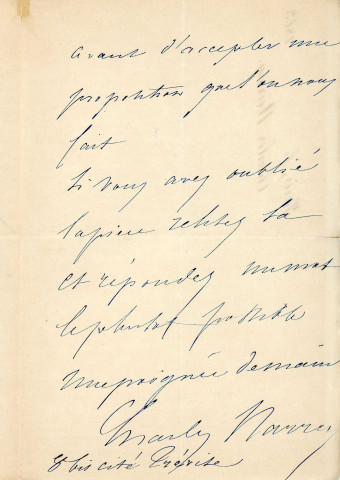 avant d'accepter une
proposition que l'on nous
fait
Si vous avez oublié
la piece relisez la
et répondez un mot
le plutot possible
une poignée de main
Charles Narrey
8 bis cité Trévise